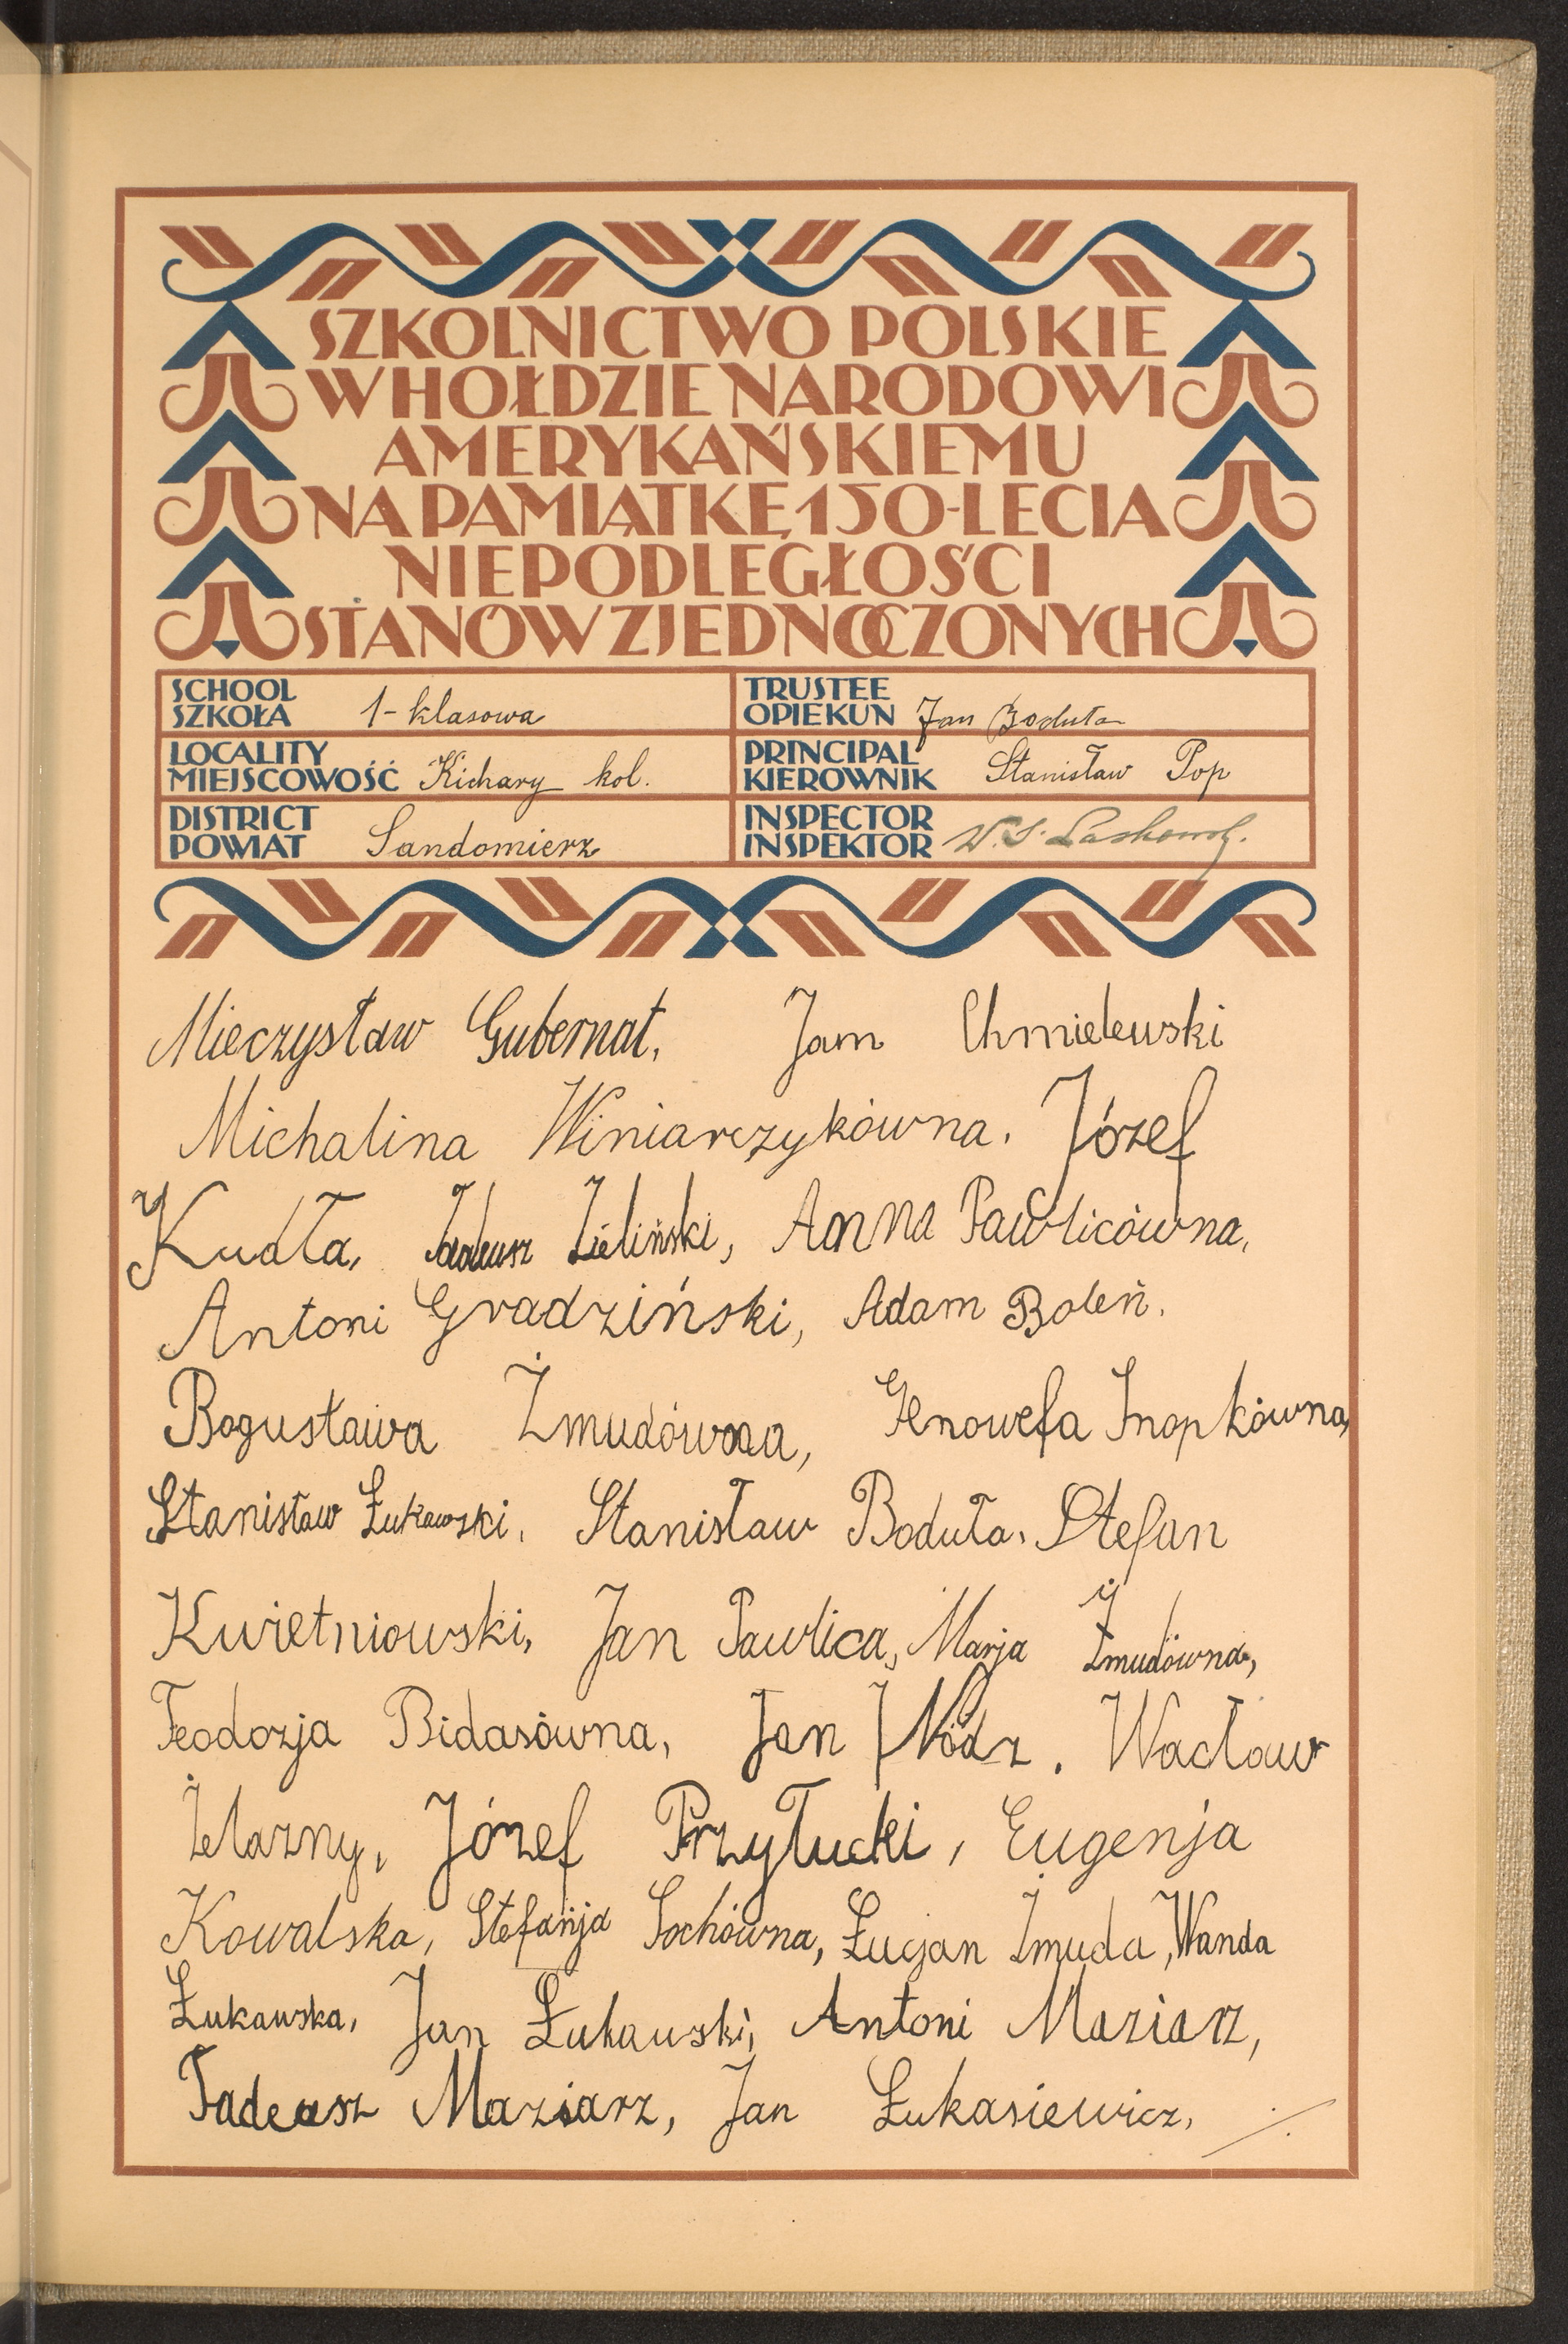 SZKOLNICTWO POLSKIE
W HOŁDZIE NARODOWI
AMERYKAŃSKIEMU
NA PAMIĄTKĘ 150-LECIA
NIEPODLEGŁOŚCI
STANÓW ZJEDNOCZONYCH
SCHOOL
SZKOŁA 1-klasowa
TRUSTEE
OPIEKUN Jan Boduła
LOCALITY
MIEJSCOWOŚĆ Kichary kol.
PRINCIPAL
KIEROWNIK Stanisław Pop
DISTRICT
POWIAT Sandomierz
INSPECTOR
INSPEKTOR
Mieczysław Gubernat, Jan Chmielewski
Michalina Winiarczykówna. Józef
Kudła, Tadeusz Zieliński, Anna Pawlicówna,
Antoni Gradziński, Adam Boleń.
Bogusława Żmudówna, Genowefa Snopkówna,
Stanisław Łukawski, Stanisław Boduła, Stefan
Kwietniowski, Jan Pawlica, Marja Żmudówna,
Teodozja Bidasówna, Jan Wódz. Wacław
Żelazny, Józef Przyłucki, Eugenja
Kowalska, Stefanja Sochówna, Łucjan Żmuda, Wanda
Łukawska, Jan Łukawski, Antoni Maziarz,
Tadeusz Maziarz, Jan Łukasiewicz,